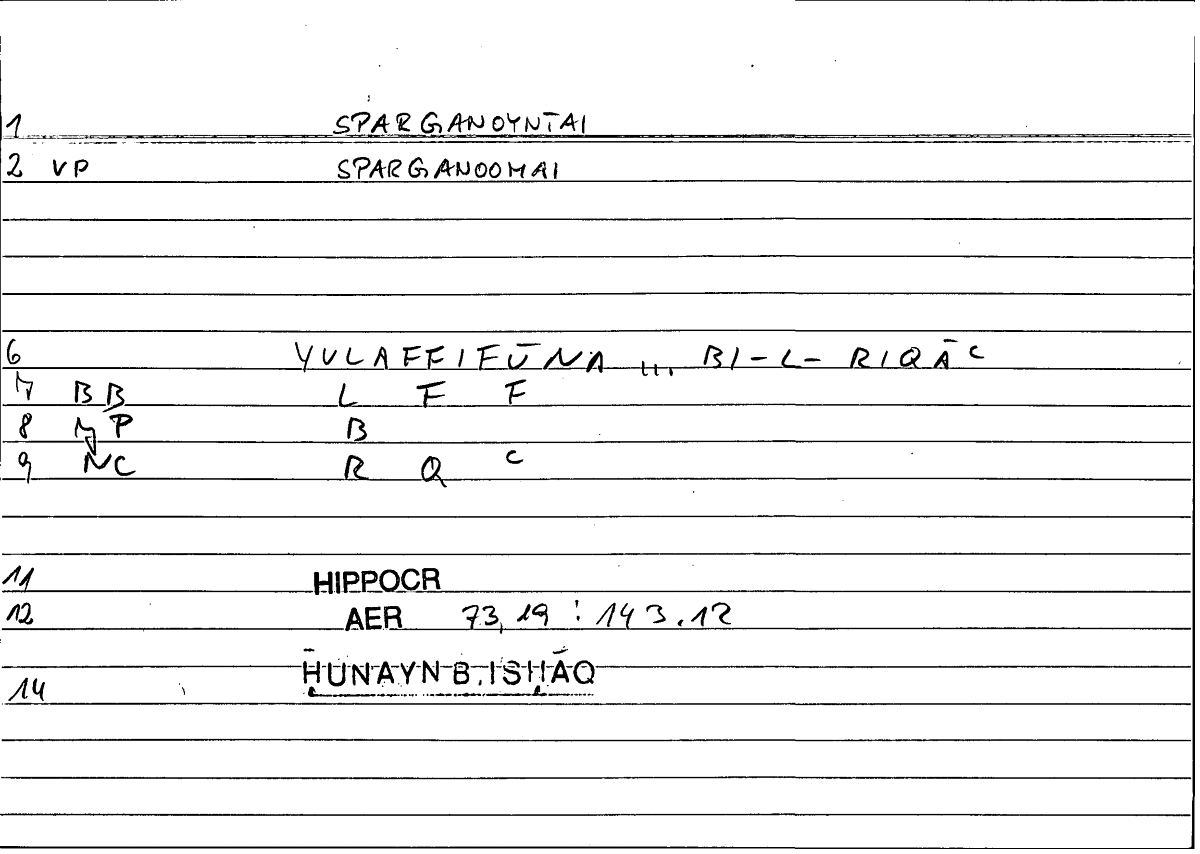 1 SPARGANOYNTAI
2 VP SPARGANOOMAI
6 YULAFFIFŪNA ... BI-L-RIQĀC
7 BB L F F
8 MP B
9 NC R Q C
11 HIPPOCR
12 AER 73,19 : 143.12
14 ḤUNAYN B. ISḤĀQ